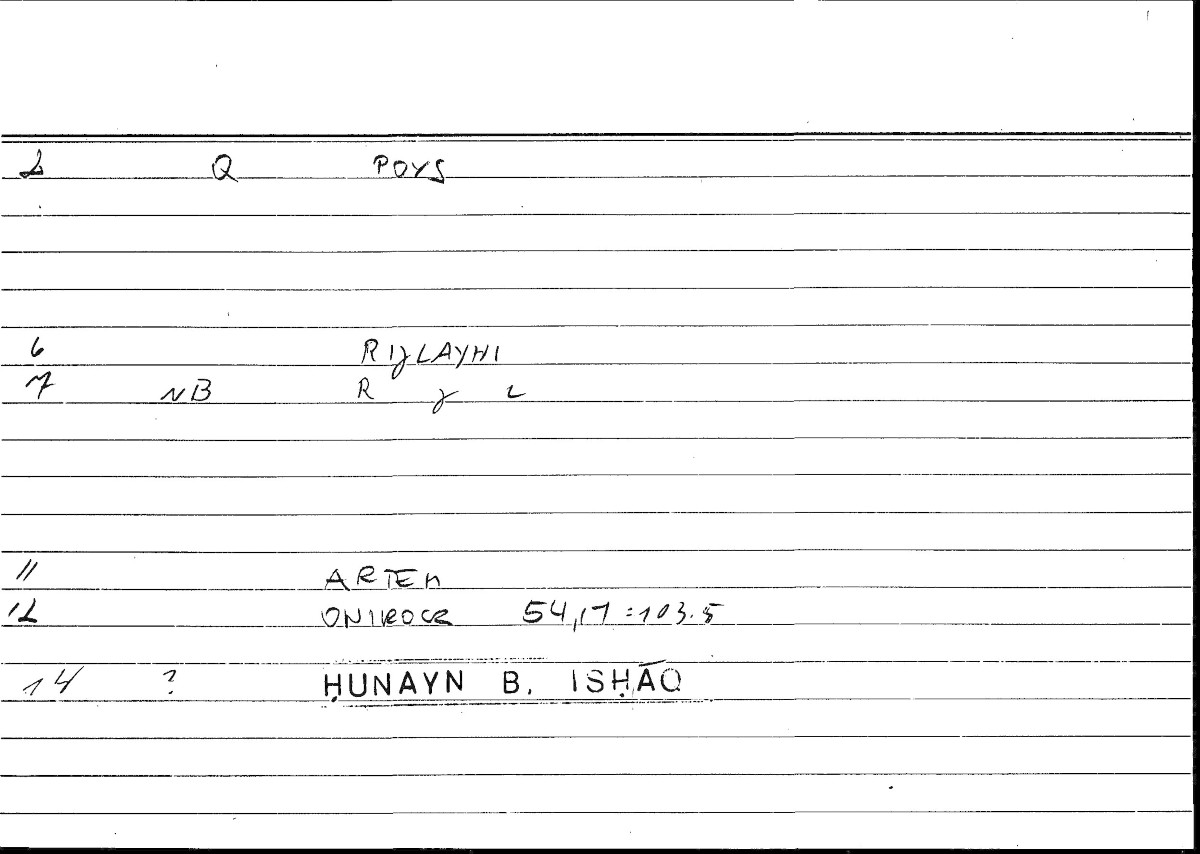 2 Q POYS
6 RIJLAYHI
7 NB R J L
11 ARTEM
12 ONIROCR 54,17=103.5
14 ? ḤUNAYN B. ISḤĀQ